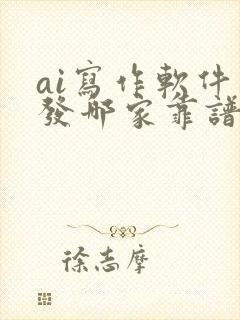 ai寫作軟件
發哪家靠譜
徐志摩